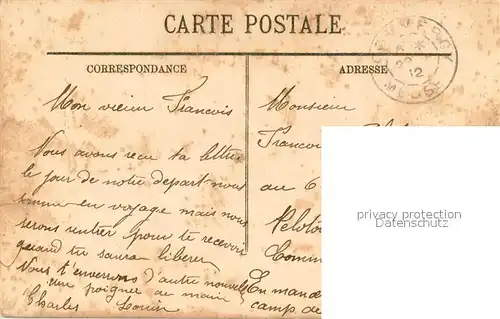 CARTE POSTALE
CORRESPONDANCE
ADRESSE
Mon vieux Francois
Nous avons recu ta lettre
le jour de notre depart nous
somme en voyage mais nous
serons rentrer pour te recevoir
quand tu saura liberer
Nous t'enverrons d'autre nouvelle
une poignee de main
Charles Louise
Monsieur
Francois
au 6
Peloton
Comm
En man
camp de
12
privacy protection
watermark